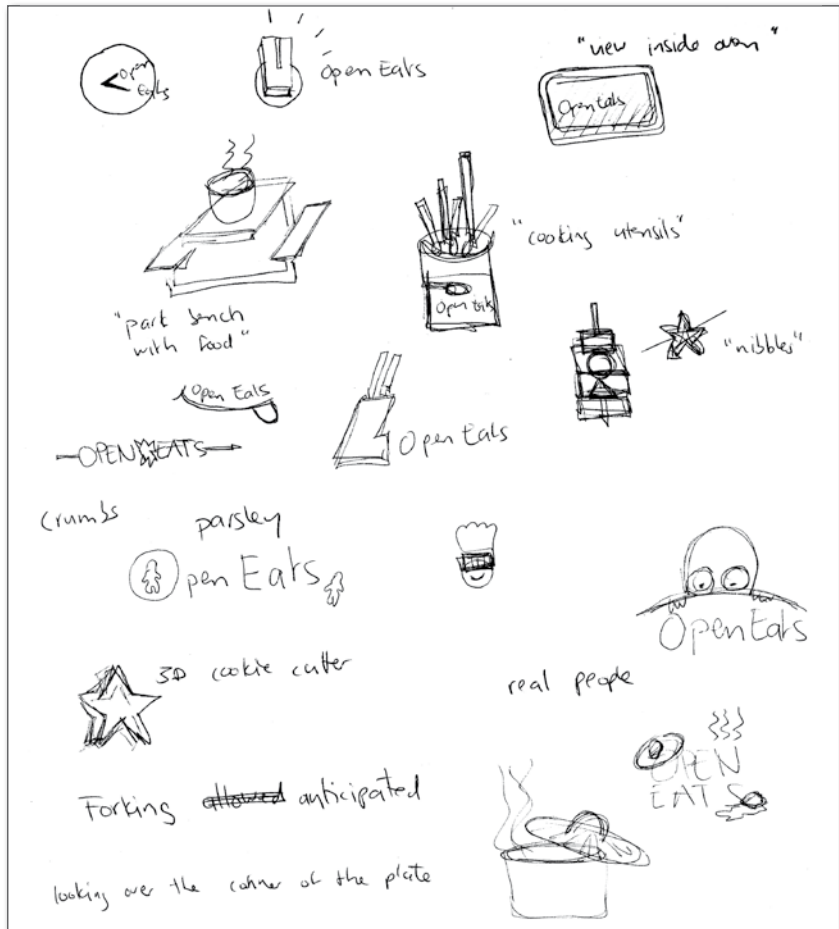 Open
Eats
Open Eats
"view inside oven"
Open Eats
"cooking utensils"
Open Eats
"park bench
with food"
"nibbles"
Open Eats
Open Eats
OPEN EATS
Crumbs
parsley
pen Eats
Open Eats
3D cookie cutter
real people
OPEN
EATS
Forking allowed anticipated
looking over the corner of the plate